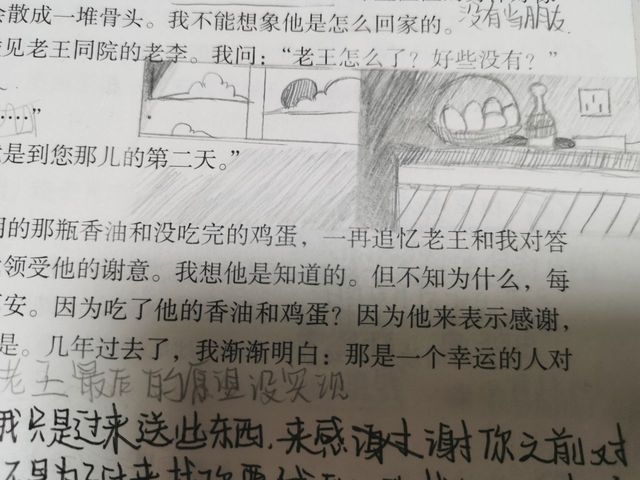 会散成一堆骨头。我不能想象他是怎么回家的。
没有当朋友.
见老王同院的老李。我问：“老王怎么了？好些没有？”
……”
是到您那儿的第二天。”
的那瓶香油和没吃完的鸡蛋，一再追忆老王和我对答
领受他的谢意。我想他是知道的。但不知为什么，每
安。因为吃了他的香油和鸡蛋？因为他来表示感谢，
是。几年过去了，我渐渐明白：那是一个幸运的人对
老王最后的愿望没实现
我只是过来送些东西，来感谢谢你之前对